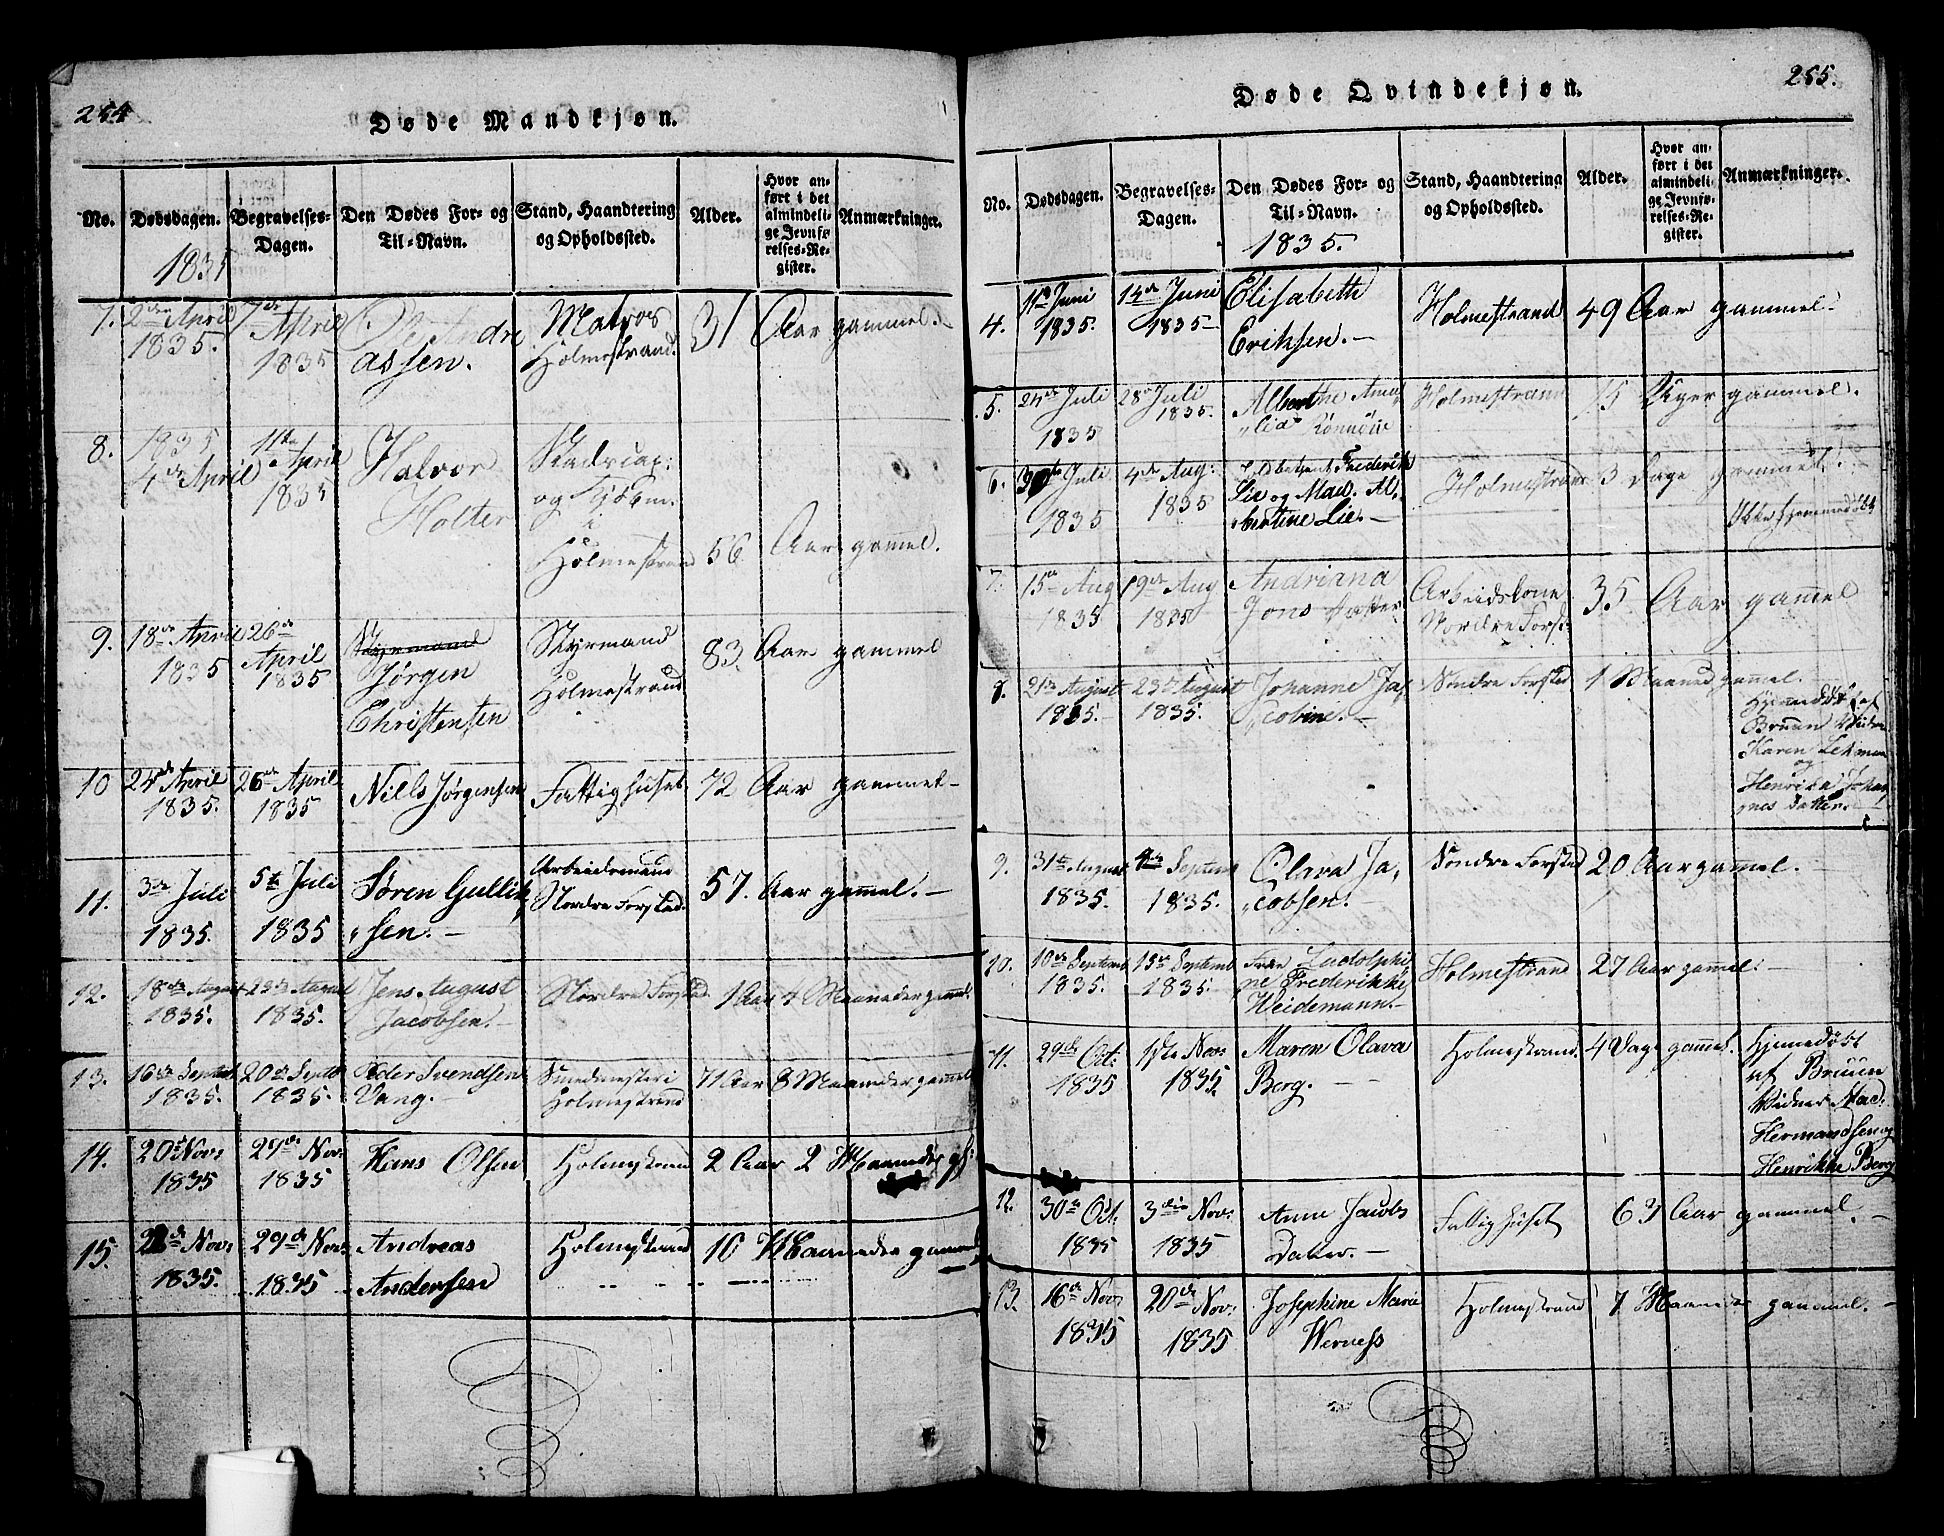 254
Døde Mandkjøn.
No.
Dødsdagen.
Begravelses-Dagen.
Den Dødes For- og Til-Navn.
Stand, Haandtering og Opholdssted.
Alder.
Hvor anført i det almindelige Jevnførelses-Register.
Anmærkninger.
1835
7. 2den April 7de
1835. April Matros 31 Aar gammel.
1835 assen. Holmestrand.
8. 1835 11te Halvor
4de April April Holter
1835 og
i
Holmestrand 56 Aar gammel.
9. 18de April 26de Styrmand Styrmand 83 Aar gammel
1835 April Jørgen Holmestrand
1835 Christensen
10 24de April 26de April Nills Jørgensen Fattighuset 72 Aar gammel
1835. 1835
11. 3de Juli 5te Juli Søren Gullik Arbeidsmand 57. Aar gammel.
1835. 1835 sen. Nordre Forstad.
12. 18de August 23de August Jens August Nordre Forstad 1 Aar Maaneder gammel
1835. 1835. Jacobsen.
13. 16de Septemb 20de Septb Peder Svendsen Smedmester i 71 Aar 8 Maaneder gammel
1835. 1835. Vang. Holmestrand
14. 20de Nov: 29de Nov: Hans Olsen Holmestrand 2 Aar 2 Maaneder gl:
1835 1835
15. Nov: 29de Nov: Andreas Holmestrand 10 Maaneder gammel
1835. 1835 Andersen
255.
Døde Qvindekjøn.
No.
Dødsdagen.
Begravelses-Dagen.
Den Dødes For- og Til-Navn.
Stand, Haandtering og Opholdssted.
Alder.
Hvor anført i det almindelige Jevnførelses-Register.
Anmærkninger.
1835.
4. 11te Juni 14de Juni Elisabeth Holmestrand 49 Aar gammel.
1835. 1835 Eriksen.
5. 24de Juli 28de Juli Alberthe Ama Holmestrand 15 Uger gammel.
1835 1835. lia
6. Juli 4de Aug: Frederik Holmestrand 3 Dage gammel.
1835 1835 Lie og Mad. Al
bertine Lie. Ikke hjemmedøbt
7. 15de Aug 19de Aug Andriana Arbeidskone 35 Aar gammel
1835 1835 Jons Datter Nordre Forst
8. 21de August 23de August Johanne Ja Søndre Forstad 1 Maaned gammel.
1835. 1835. cobine. Hjemmedøbt af
Bruun Vidne
Karen
og
Henrika Johan
nes Datter.
9. 31te August 4de Septem Olava Ja Søndre Forstad 20 Aar gammel.
1835. 1835. cobsen.
10. 10de Septemb 15de Septemb Frue Ludolphi Holmestrand 27 Aar gammel.
1835. 1835. ne Frederikke
Weidemann.
11. 29de Oct: 1ste Nov: Maren Olava Holmestrand 4 Dage gammel. Hjemmedøbt
1835 1835 Berg. af Bruun
Vidner Mad:
Hermandsen og
Henrikke Berg
12. 30te Oct. 3die Nov: Anne Jacobs Fattighuset 63 Aar gammel.
1835 1835 Datter.
13. 16de Nov: 20de Nov: Josephine Marie Holmestrand 7 Maaneder gammel.
1835 1835 Werness